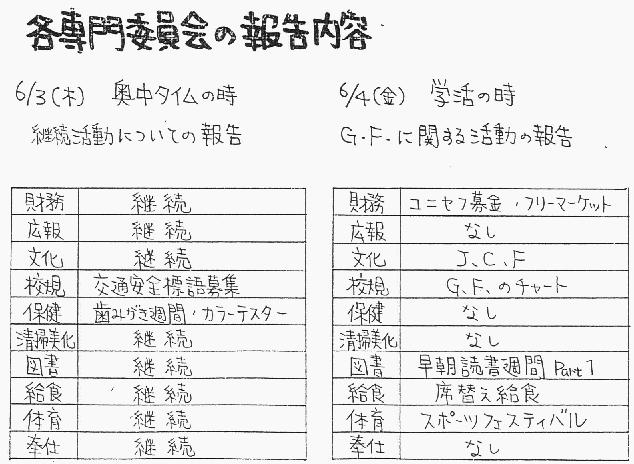 各専門委員会の報告内容
6/3(木) 奥中タイムの時
継続活動についての報告
財務 継続
広報 継続
文化 継続
校規 交通安全標語募集
保健 歯みがき週間・カラーテスター
清掃美化 継続
図書 継続
給食 継続
体育 継続
奉仕 継続
6/4(金) 学活の時
G.F.に関する活動の報告
財務 ユニセフ募金・フリーマーケット
広報 なし
文化 J.C.F
校規 G.F.のチャート
保健 なし
清掃美化 なし
図書 早朝読書週間 Part 1
給食 席替え給食
体育 スポーツフェスティバル
奉仕 なし